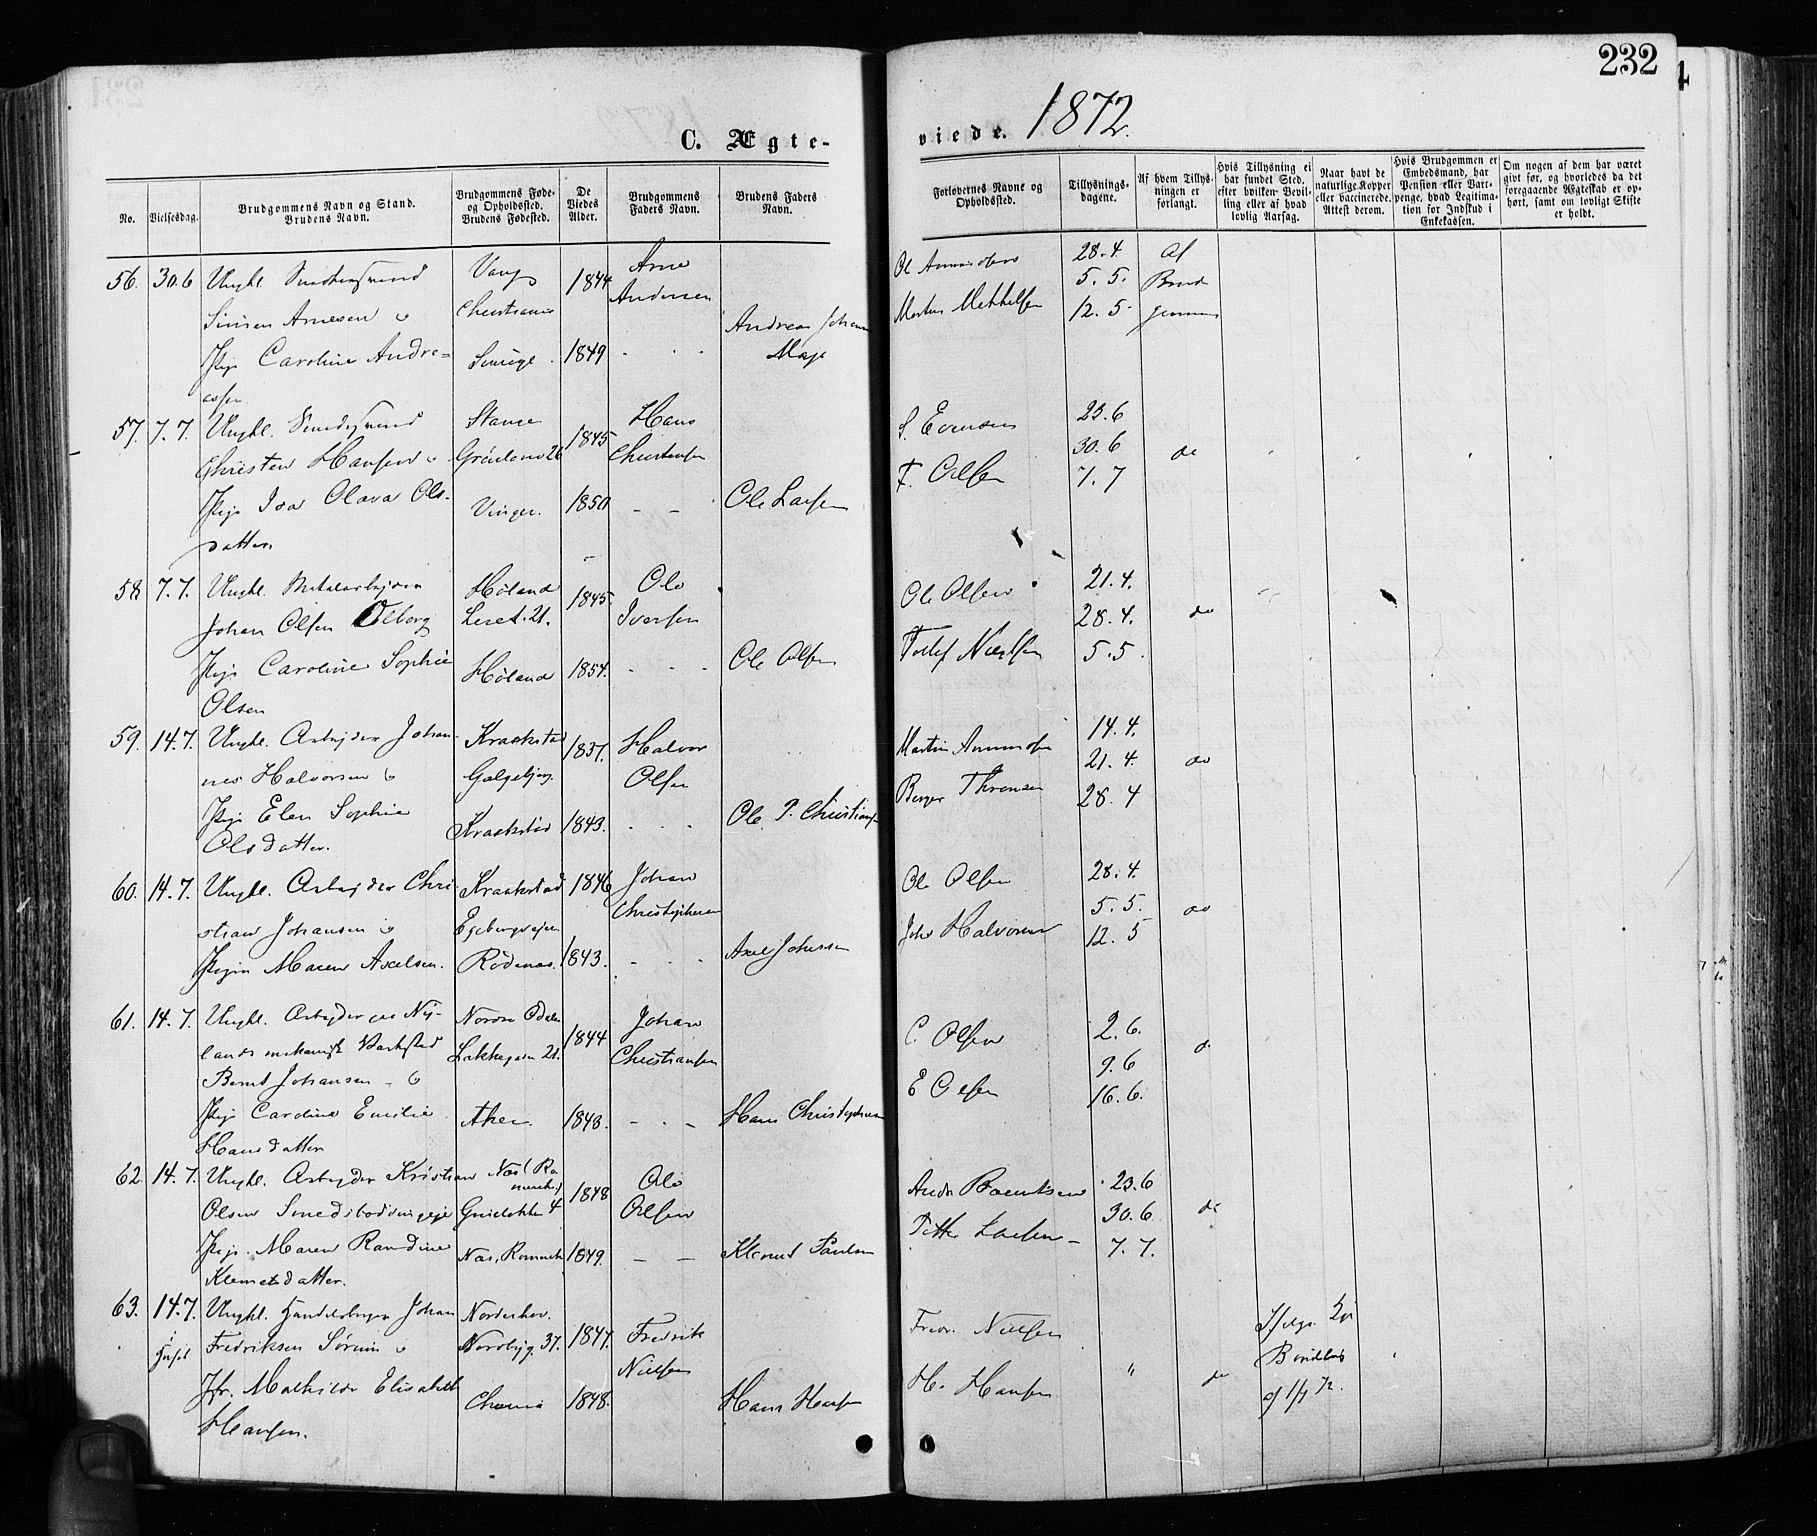 232
C. Ægte-
viede. 1872.
No.
Vielsesdag.
Brudgommens Navn og Stand.
Brudens Navn.
Brudgommens Føde-
og Opholdssted.
Brudens Fødested.
De
Viedes
Alder.
Brudgommens
Faders Navn.
Brudens Faders
Navn.
Forlovernes Navne og
Opholdssted.
Tillysnings-
dagene.
Af hvem Tillys-
ningen er
forlangt.
Hvis Tillysning ei
har fundet Sted,
efter hvilken Bevil-
ling eller af hvad
lovlig Aarsag.
Naar havt de
naturlige Kopper
eller vaccinerede.
Attest derom.
Hvis Brudgommen er
Embedsmand, har
Pension eller Vart-
penge, hvad Legitima-
tion for Indskud i
Enkekassen.
Om nogen af dem har været
gift før, og hvorledes da det
foregaaende Ægteskab er op-
hørt, samt om lovligt Skifte
er holdt.
56. 30.6 Ungkl. Vang 1844 Arne 28.4. Af
Simen Arnesen o Christiania Andersen 5.5. Brud
Pige Caroline Andre- 1849 Andreas 12.5 gommen
assen
57. 7.7. Ungkl. Stange 1845 Hans S. Evensen 23.6
Christen Hansen o Grönland 26 Christensen 30.6 do
Pige Ida Olava Ols- Vinger. 1850 Ole Larsen F. Olsen 7.7
datter.
58 7.7. Ungkl. Metalarbejder Höland 1845. Ole Ole Olsen 21.4.
Johan Olsen Iversen 28.4. do
Pige Caroline Sophie Höland 1854. Ole Olsen Nielsen 5.5.
Olsen
59. 14.7. Ungkl. Arbejder Johan- Kraakstad 1837. Halvor Martin 14.4.
nes Halvorsen o Galgebjerg Olsen 21.4. do
Pige Elen Sophie Kraakstad 1843. Ole P. Christiansen Berger Thronsen 28.4
Olsdatter.
60. 14.7. Ungkl. Arbejder Chri- Kraakstad 1846 Johan Ole Olsen 28.4.
stian Johansen o Egebergvejen Christophersen 5.5. do
Pigen Maren Axelsen. Rödenes. 1843. Axel Johnsen Halvorsen 12.5
61. 14.7. Ungkl. Arbejder paa Ny- Nordre Odalen 1844 Johan C. Olsen 2.6.
lands mekaniske Værksted Lakkegaden 21. Christiansen 9.6 do
Bernt Johansen - o E Olsen 16.6.
Pige Caroline Emilie Aker 1848. Hans Christophersen
Hansdatter
62. 14.7. Ungkl. Arbejder Kristian Næs (Ro- 1848 Ole 23.6
merike)
Olsen Smedstadsvingeje 4 Olsen 30.6. do
Pige. Maren Randine Næs, Romerike 1849. Klemet Paulsen Larsen 7.7.
Klemetsdatter.
63. 14.7. Ungkl. Johan Norderhov. 1847. Fredrik Nielsen
i
Fredriksen Sörum o Nordbyg. 37. Nielsen
Jfr. Mathilde Elisabeth Chania 1848. Hans Hansen H. Hansen " do
Hansen.